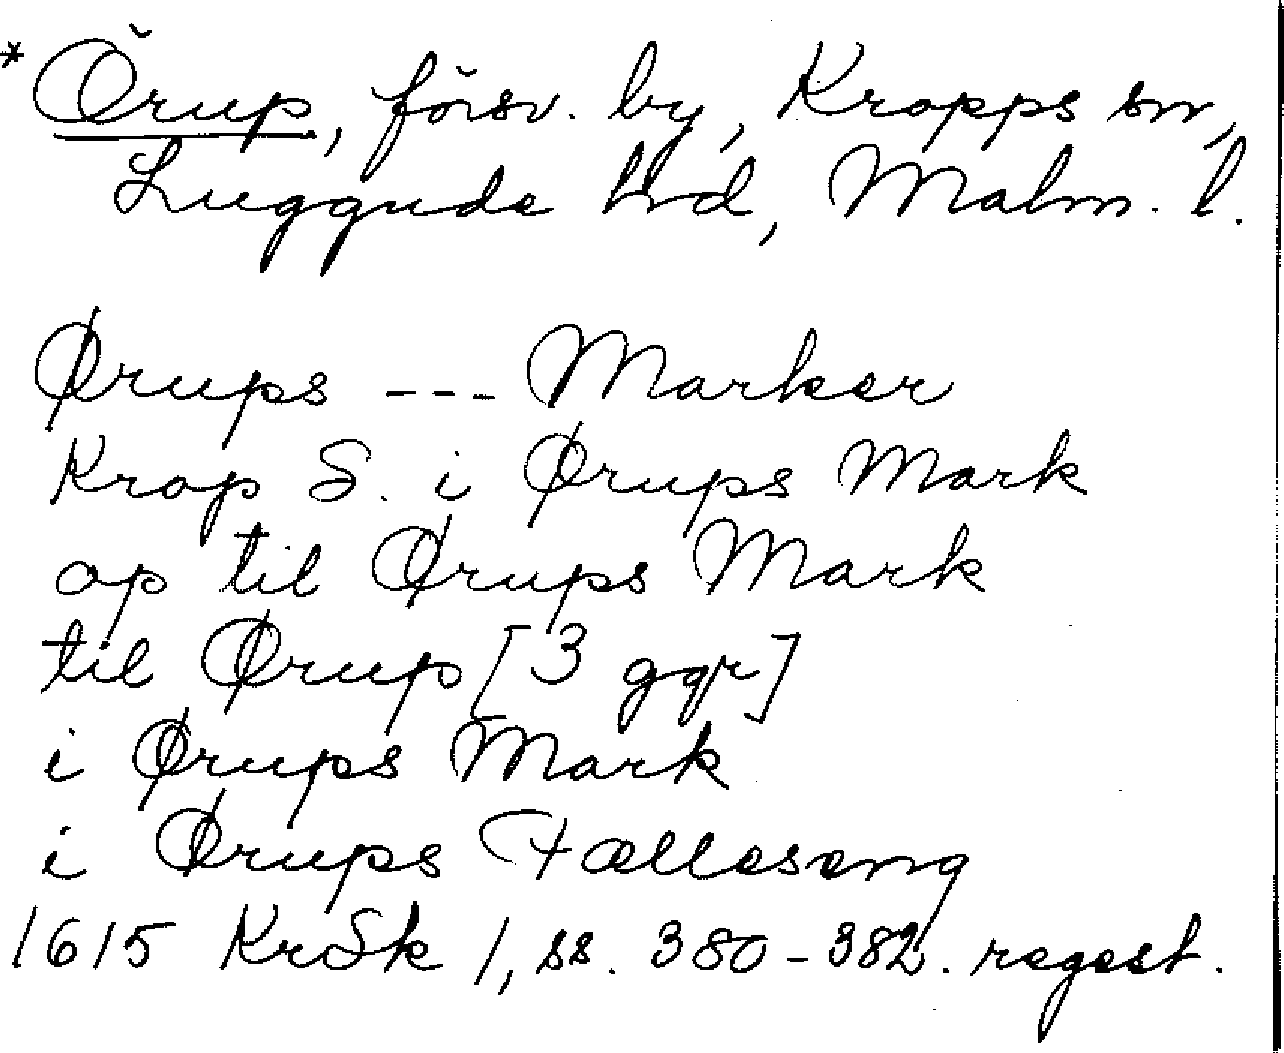 *Örup, försv. by, Kropps sn,
Luggude hd, Malm. l.
Ørups --- Marker
Krop S. i Ørups Mark
op til Ørups Mark
til Ørup [3 ggr]
i Ørups Mark
i Ørups Fælleseng
1615 KrSk 1, ss. 380-382. regest.